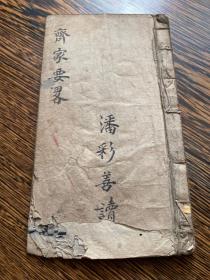 齊家要畧
潘彩善讀